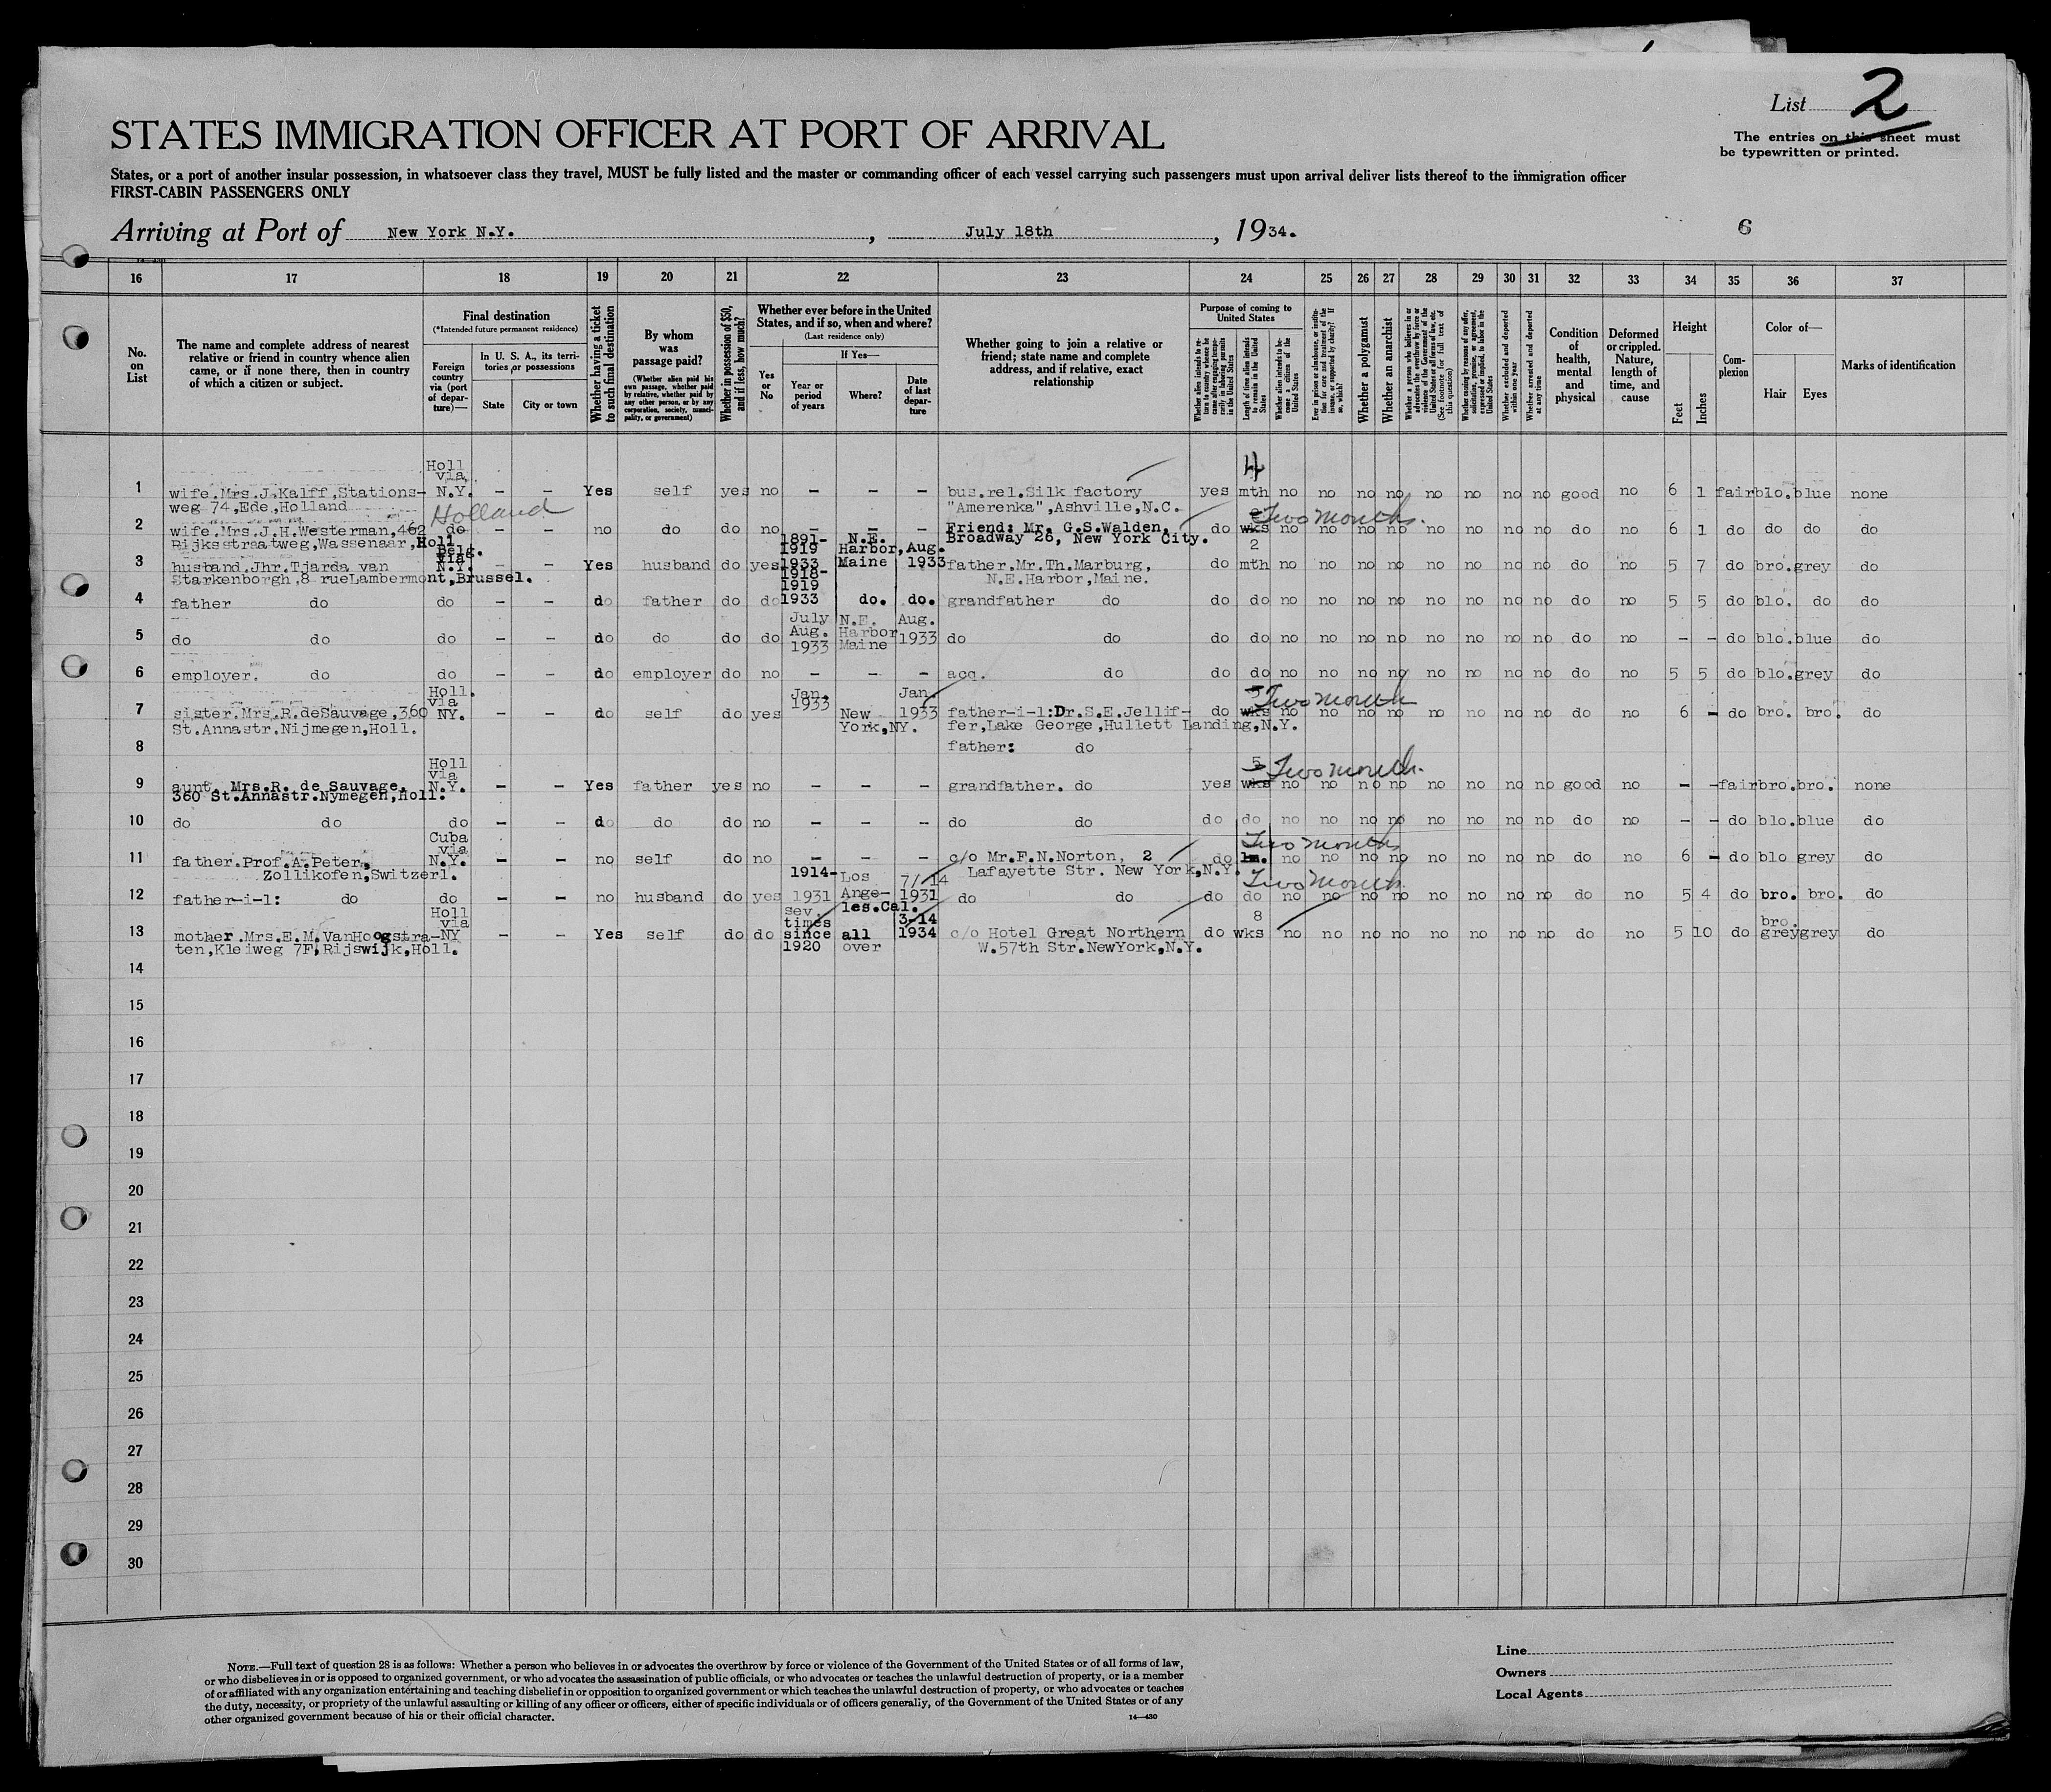 List 2
STATES IMMIGRATION OFFICER AT PORT OF ARRIVAL
The entries on this sheet must
be typewritten or printed.
States, or a port of another insular possession, in whatsoever class they travel, MUST be fully listed and the master or commanding officer of each vessel carrying such passengers must upon arrival deliver lists thereof to the immigration officer
FIRST-CABIN PASSENGERS ONLY
Arriving at Port of New York N.Y. , July 18th , 1934.
6
16 17 18 19 20 21 22 23 24 25 26 27 28 29 30 31 32 33 34 35 36 37
No. on List
The name and complete address of nearest
relative or friend in country whence alien
came, or if none there, then in country
of which a citizen or subject.
Final destination
(*Intended future permanent residence)
Foreign country via (port of departure)—
In U. S. A., its territories, or possessions
State
City or town
Whether having a ticket to such final destination
By whom was passage paid?
(Whether alien paid his own passage, whether paid by relative, whether paid by any other person, or by any corporation, society, municipality, or government)
Whether in possession of $50, and if less, how much?
Whether ever before in the United
States, and if so, when and where?
(Last residence only)
Yes or No
If Yes—
Year or period of years
Where?
Date of last departure
Whether going to join a relative or
friend; state name and complete
address, and if relative, exact
relationship
Purpose of coming to United States
Whether alien intends to return to country whence he came after engaging temporarily in laboring pursuits in the United States
Length of time alien intends to remain in the United States
Whether alien intends to become a citizen of the United States
Ever in prison or almshouse, or institution for care and treatment of the insane, or supported by charity? If so, which?
Whether a polygamist
Whether an anarchist
Whether a person who believes in or advocates the overthrow by force or violence of the Government of the United States or all forms of law, etc. (See footnote for full text of this question)
Whether coming by reasons of any offer, solicitation, promise, or agreement, expressed or implied, to labor in the United States
Whether excluded and deported within one year
Whether arrested and deported at any time
Condition of health, mental and physical
Deformed or crippled. Nature, length of time, and cause
Height
Feet
Inches
Complexion
Color of—
Hair
Eyes
Marks of identification
1 wife.Mrs.J.Kalff,Stations- Holl via N.Y. - - Yes self yes no - - - bus.rel.Silk factory yes 4 mth no no no no no no no no good no 6 1 fair blo. blue none
weg 74,Ede,Holland "Amerenka",Ashville,N.C.
Holland
2 wife.Mrs.J.H.Westerman,462 do - - no do do no - - - Friend: Mr. G.S.Walden, do wks Two Months. no no no no no no no no do no 6 1 do do do do
Rijksstraatweg,Wassenaar,Holl. Broadway 26, New York City.
3 husband.Jhr.Tjarda van Belg. via N.Y. - - Yes husband do yes 1891-1919 1933 N.E. Harbor, Maine Aug. 1933 father.Mr.Th.Marburg, do 2 mth no no no no no no no no do no 5 7 do bro. grey do
Starkenborgh,8 rueLambermont,Brussel. N.E.Harbor,Maine.
4 father do do - - do father do do 1918-1919 1933 do. do. grandfather do do do no no no no no no no no do no 5 5 do blo. do do
5 do do do - - do do do do July Aug. 1933 N.E. Harbor Maine Aug. 1933 do do do do no no no no no no no no do no - - do blo. blue do
6 employer. do do - - do employer do no - - - acc. do do do no no no no no no no no do no 5 5 do blo. grey do
7 sister.Mrs.R.deSauvage,360 Holl. via NY. - - do self do yes Jan. 1933 New York,NY. Jan 1933 father-i-l:Dr.S.E.Jellif- do wks Two Month no no no no no no no no do no 6 - do bro. bro. do
St.Annastr.Nijmegen,Holl. fer,Lake George,Hullett Landing,N.Y.
8 father: do
9 aunt. Mrs.R. de Sauvage, Holl via N.Y. - - Yes father yes no - - - grandfather. do yes 5 wks Two Month. no no no no no no no no good no - - fair bro. bro. none
360 St.Annastr.Nymegen,Holl.
10 do do do - - do do do no - - - do do do do no no no no no no no no do no - - do blo. blue do
11 father.Prof.A.Peter, Cuba via N.Y. - - no self do no - - - c/o Mr.F.N.Norton, 2 do 1m. Two Months no no no no no no no no do no 6 - do blo grey do
Zollikofen,Switzerl. Lafayette Str. New York,N.Y.
12 father-i-l: do do - - no husband do yes 1914-1931 Los Angeles.Cal. 7/14 1931 do do do do Two Month. no no no no no no no no do no 5 4 do bro. bro. do
13 mother.Mrs.E.M.VanHoogstra- Holl via NY - - Yes self do do sev. times since 1920 all over 3-14 1934 c/o Hotel Great Northern do 8 wks no no no no no no no no do no 5 10 do bro. grey grey do
ten,Kleiweg 7F,Rijswijk,Holl. W.57th Str.NewYork,N.Y.
14
15
16
17
18
19
20
21
22
23
24
25
26
27
28
29
30
NOTE.—Full text of question 28 is as follows: Whether a person who believes in or advocates the overthrow by force or violence of the Government of the United States or of all forms of law,
or who disbelieves in or is opposed to organized government, or who advocates the assassination of public officials, or who advocates or teaches the unlawful destruction of property, or is a member
of or affiliated with any organization entertaining and teaching disbelief in or opposition to organized government or which teaches the unlawful destruction of property, or who advocates or teaches
the duty, necessity, or propriety of the unlawful assaulting or killing of any officer or officers, either of specific individuals or of officers generally, of the Government of the United States or of any
other organized government because of his or their official character.
14—430
Line
Owners
Local Agents